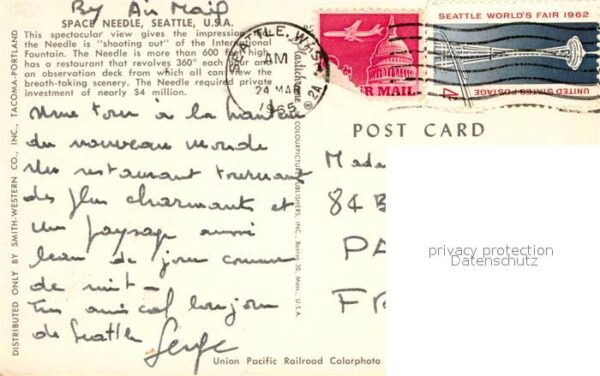 By Air Mail
SPACE NEEDLE, SEATTLE, U.S.A.
This spectacular view gives the impression
the Needle is "shooting out" of the International
Fountain. The Needle is more than 600 feet high,
has a restaurant that revolves 360° each hour and
an observation deck from which all can view the
breath-taking scenery. The Needle required private
investment of nearly $4 million.
Une tour à la hauteur
du nouveau monde
Un restaurant tournant
des plus charmants et
un paysage aussi
beau de jour comme
de nuit -
Un amical bonjour
de Seattle
Serge
DISTRIBUTED ONLY BY SMITH-WESTERN CO., INC., TACOMA-PORTLAND
Plastichrome ®
COLOURPICTURE PUBLISHERS, INC., Boston 30, Mass., U.S.A.
SEATTLE, WASH.
AM
24 MAR
1965
2A
R MAIL
SEATTLE WORLD'S FAIR 1962
4¢
UNITED STATES POSTAGE
POST CARD
Mada
84 B
PA
FR
privacy protection
Datenschutz
Union Pacific Railroad Colorphoto